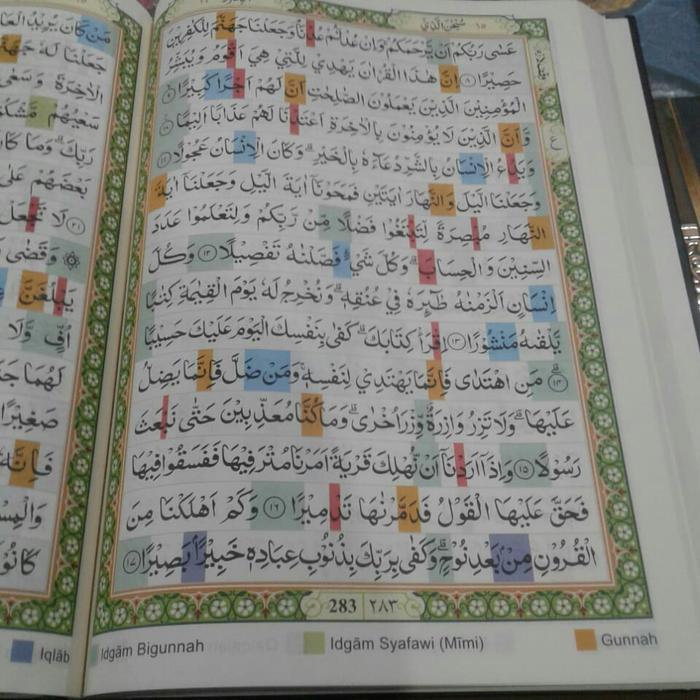 سُبْحٰنَ الَّذِيْ ١٥
عَسٰى رَبُّكُمْ اَنْ يَّرْحَمَكُمْ وَاِنْ عُدْتُّمْ عُدْنَا وَجَعَلْنَا جَهَنَّمَ لِلْكٰفِرِيْنَ
حَصِيْرًا ٨ اِنَّ هٰذَا الْقُرْاٰنَ يَهْدِيْ لِلَّتِيْ هِيَ اَقْوَمُ وَيُبَشِّرُ
الْمُؤْمِنِيْنَ الَّذِيْنَ يَعْمَلُوْنَ الصّٰلِحٰتِ اَنَّ لَهُمْ اَجْرًا كَبِيْرًا ٩
وَّاَنَّ الَّذِيْنَ لَا يُؤْمِنُوْنَ بِالْاٰخِرَةِ اَعْتَدْنَا لَهُمْ عَذَابًا اَلِيْمًا ١٠
وَيَدْعُ الْاِنْسَانُ بِالشَّرِّ دُعَاۤءَهٗ بِالْخَيْرِۗ وَكَانَ الْاِنْسَانُ عَجُوْلًا ١١
وَجَعَلْنَا الَّيْلَ وَالنَّهَارَ اٰيَتَيْنِ فَمَحَوْنَآ اٰيَةَ الَّيْلِ وَجَعَلْنَآ اٰيَةَ
النَّهَارِ مُبْصِرَةً لِّتَبْتَغُوْا فَضْلًا مِّنْ رَّبِّكُمْ وَلِتَعْلَمُوْا عَدَدَ
السِّنِيْنَ وَالْحِسَابَۗ وَكُلَّ شَيْءٍ فَصَّلْنٰهُ تَفْصِيْلًا ١٢ وَكُلَّ
اِنْسَانٍ اَلْزَمْنٰهُ طٰۤىِٕرَهٗ فِيْ عُنُقِهٖۗ وَنُخْرِجُ لَهٗ يَوْمَ الْقِيٰمَةِ كِتٰبًا
يَّلْقٰىهُ مَنْشُوْرًا ١٣ اِقْرَأْ كِتَابَكَۗ كَفٰى بِنَفْسِكَ الْيَوْمَ عَلَيْكَ حَسِيْبًا
١٤ مَنِ اهْتَدٰى فَاِنَّمَا يَهْتَدِيْ لِنَفْسِهٖۚ وَمَنْ ضَلَّ فَاِنَّمَا يَضِلُّ
عَلَيْهَاۗ وَلَا تَزِرُ وَازِرَةٌ وِّزْرَ اُخْرٰىۗ وَمَا كُنَّا مُعَذِّبِيْنَ حَتّٰى نَبْعَثَ
رَسُوْلًا ١٥ وَاِذَآ اَرَدْنَآ اَنْ نُّهْلِكَ قَرْيَةً اَمَرْنَا مُتْرَفِيْهَا فَفَسَقُوْا فِيْهَا
فَحَقَّ عَلَيْهَا الْقَوْلُ فَدَمَّرْنٰهَا تَدْمِيْرًا ١٦ وَكَمْ اَهْلَكْنَا مِنَ
الْقُرُوْنِ مِنْۢ بَعْدِ نُوْحٍۗ وَكَفٰى بِرَبِّكَ بِذُنُوْبِ عِبَادِهٖ خَبِيْرًاۢ بَصِيْرًا ١٧
283 ٢٨٣
Iqlāb Idgām Bigunnah Idgām Syafawi (Mīmi) Gunnah